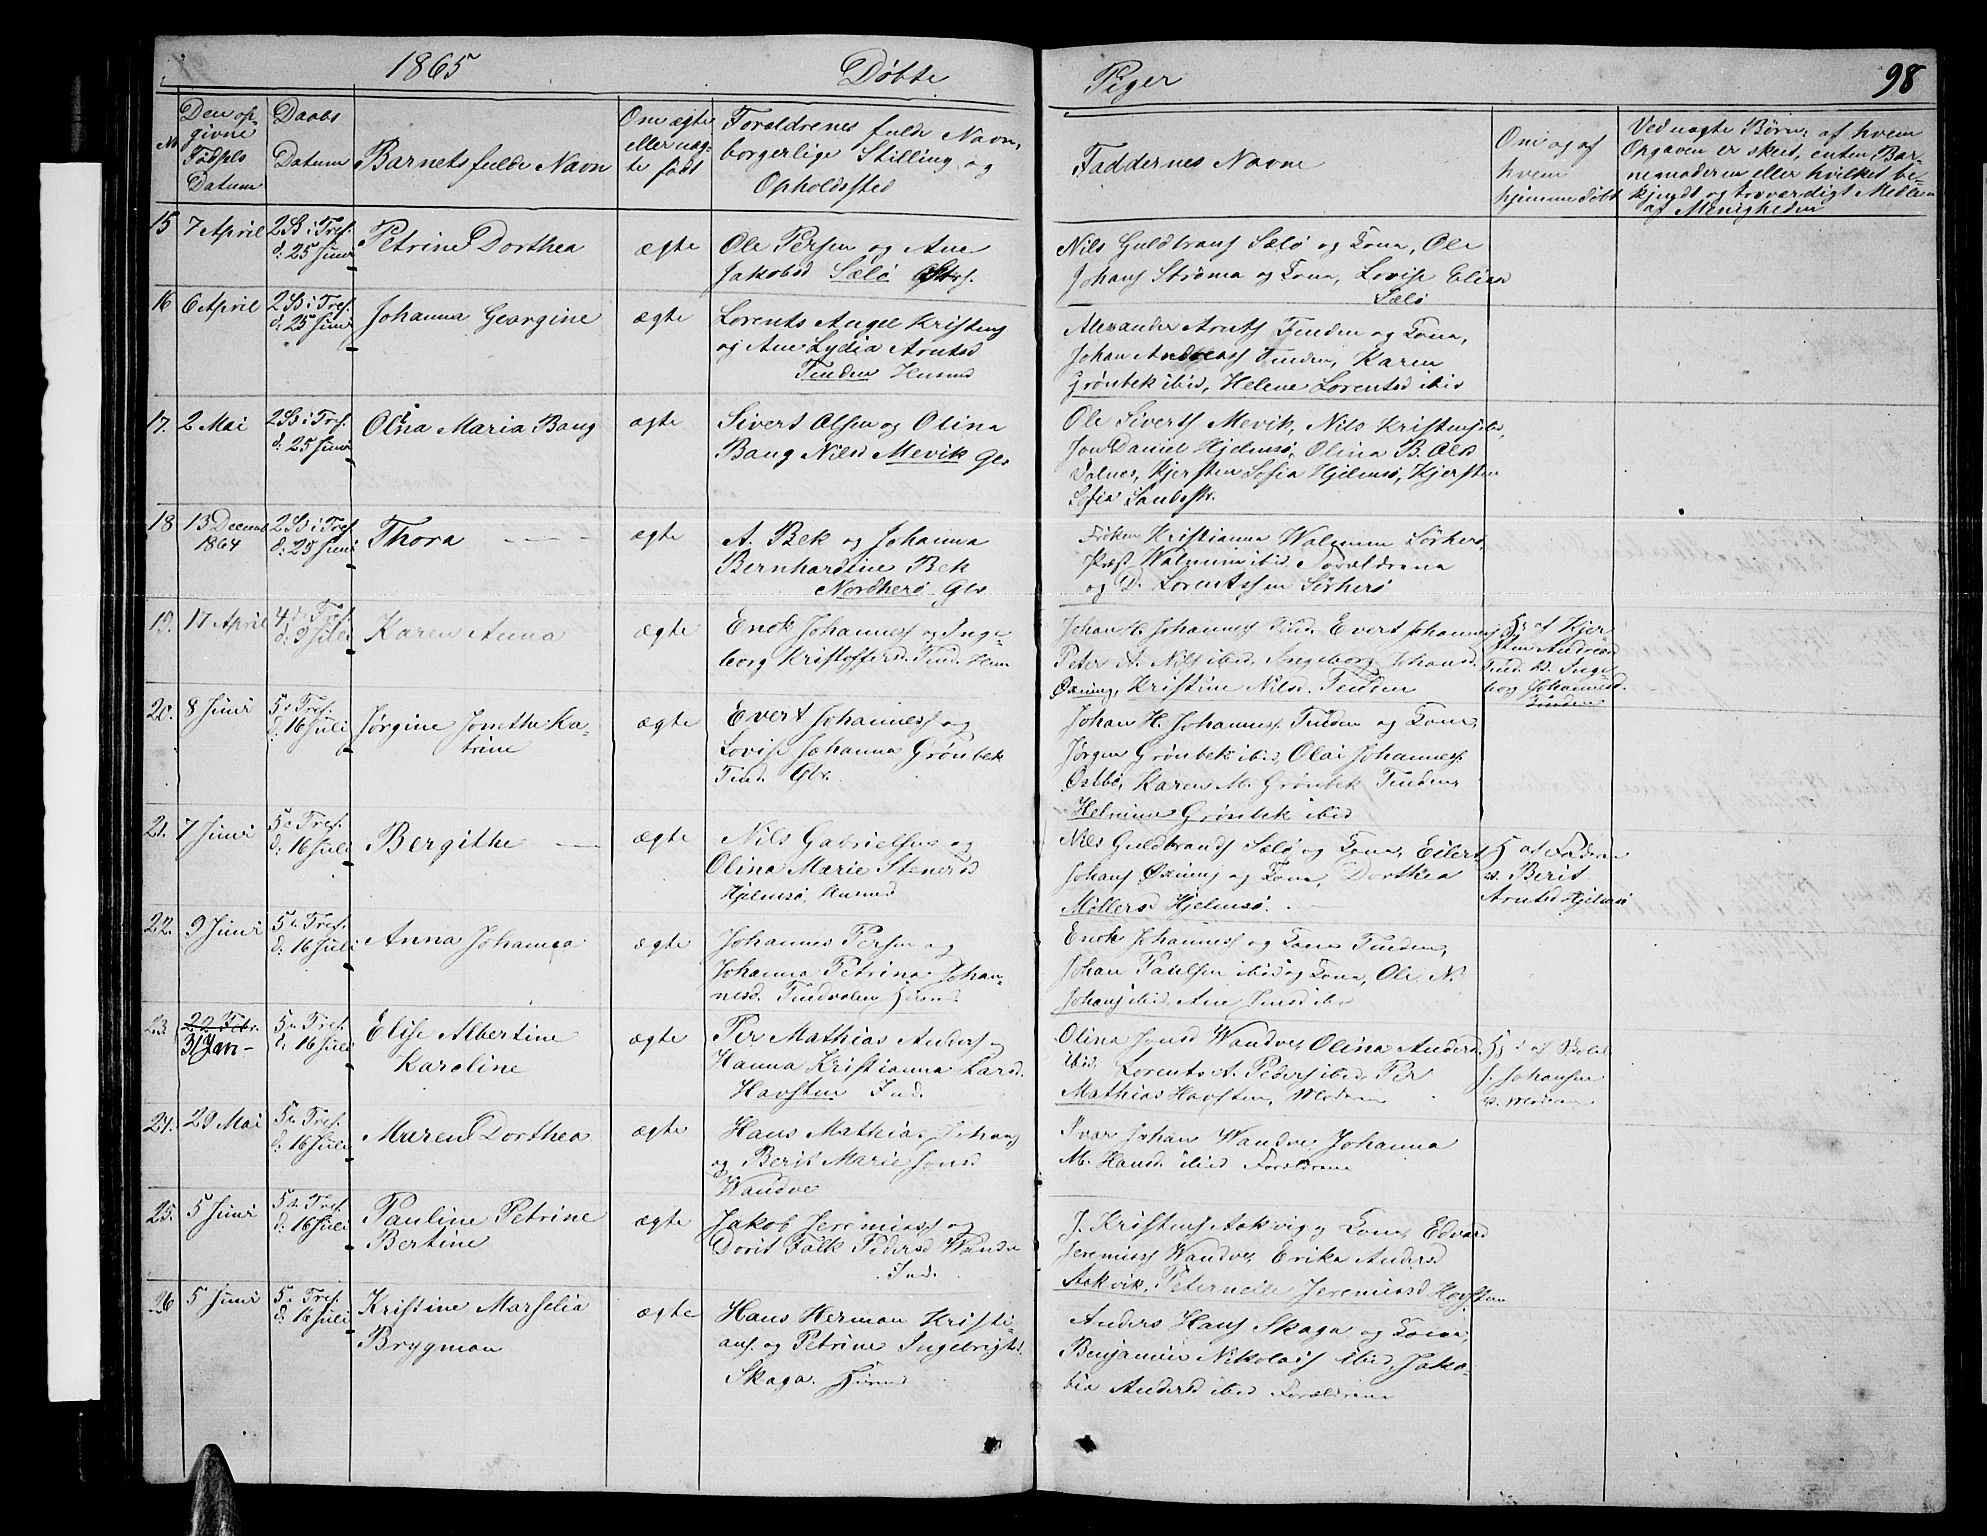 1865 Døbte Piger 98
No Den opgivne Fødsels Datum
Daabs Datum
Barnets fulde Navn
Om ægte eller uægte født
Forældrenes fulde Navn, borgerlige Stilling, og Opholdssted
Faddernes Navne
Om og af hvem hjemmedøbt
Ved uægte Børn, af hvem
Opgaven er skeet, enten Bar-
nemoderen eller hvilket be-
kjendt og troværdigt Medlem
af Menigheden
15 7 April 2 S i Tref. d. 25 Juni Petrine Dorthea ægte
Ole Persen og Ane
Jakobsd Sælø
Nils Guldbrands Sælø og Kona, Ole
Johans Strøma og Kona, Lovise Eliasd
Sælø
16 6 April 2 S i Tref. d. 25 Juni Johanna Georgine ægte
Lorents Angel Kristens
og Ane Lydia Arntsd
Tinden Husmd
Alexander Arnts Tinden og Kona,
Johan Andreas Tinden, Karen
Grönbek ibid, Helene Lorentsd ibid
17. 2 Mai 2 S i Tref. d. 25 Juni Olina Maria Bang ægte
Sivert Olsen og Olina
Bang Nilsd Mevik Gbr
Ole Siverts Mevik, Nils Kristens ibd,
Jon Daniel Hjelmsø, Olina B. Olsd
Valnes, Kjersten Sofia Hjelmsø, Kjersten
Sofia Sandsk.
18 13 Decemb 1864 2 S i Tref. d. 25 Juni Thora ægte
A. Bek og Johanna
Bernhardine Bek
Nordherø Gbr
Frøken Kristianna Walnum Sörherø,
Præst Walnum ibid, Forældrene
og D. Lorentssen Sörherø
19. 17 April 4 S. Tref. d. 9 Juli Karen Anna ægte
Enok Johanness og Inge-
borg Kristoffersd. Tind. Husm
Johan H. Johanness Tind. Evert Johanness
Peter A. Nils ibid, Ingeborg Johansd.
Øxning, Kristine Nilsd. Tinden
H. af Kjer-
sten Andreasd
Tind. B. Inge-
borg Johannesd.
Tinden
20. 8 Juni 5 S Tref. d. 16 Juli Jørgine Jonethe Ka-
trine
ægte
Evert Johanness og
Lovise Johanna Grönbek
Tind. Gbr.
Johan H. Johanness. Tinden og Kona,
Jörgen Grönbek ibid, Olai Johanness.
Østbø, Karen M. Grönbek Tinden
Helmine Grönbek ibid
21. 7 Juni 5 S Tref. d. 16 Juli Bergithe ægte
Nils Gabrielsen og
Olina Marie Stenersd
Hjelmsö, Husmd
Nils Guldbrands Sælø og Kona, Eilert
Johans Øxning og Kona, Dorthea
Møllersd Hjelmsö.
H af Faderen
v. Berit
Arntsd Hjelmsö
22. 9 Juni 5 S. Tref. d. 16 Juli Anna Johanna ægte
Johannes Persen og
Johanna Petrina Johan-
nesd. Tindvolen Husmd
Enok Johanness og Kona Tinden,
Johan Paulsen ibid og Kona, Ole N.
Johans ibid. Ane Jensd ibid
23. 22 Febr. 31 Jan- 5 S. Tref. d. 16 Juli Elise Albertine
Karoline
ægte
Per Mathias Anders og
Hanna Kristianna Larsd.
Havsten Ind.
Olina Jonsd Wandve, Olina Andersd.
ibid. Lorents A. Peders ibid. Per
Mathias Havsten, Moderen
H. af
J. Johansen
v. Moderen
24. 29 Mai 5 S. Tref. d. 16 Juli Maren Dorthea ægte
Hans Mathias Johans
og Berit Marie Jonsd
Wandve
Ivar Johan Wandve Johanna
M. Hansd. ibid Forældrene
25. 5 Juni 5 S. Tref. d. 16 Juli Pauline Petrine
Bertine
ægte
Jakob Jeremiass og
Dorit Falk Pedersd Wandve
Ind.
J. Kristens Aakvig og Kona, Edvard
Jeremiass Wandve, Erika Andersd
Aakvik, Peternelle Jeremiasd Havsten
26 5 Juni 5 S. Tref. d. 16 Juli Kristine Marselia
Brygman
ægte
Hans Herman Kristi-
ans. og Petrine Ingebrigtsd.
Skaga. Husmd
Anders Hans Skaga og Kona,
Benjamin Nikolais ibid, Jako-
bia Andersd ibid Forældrene